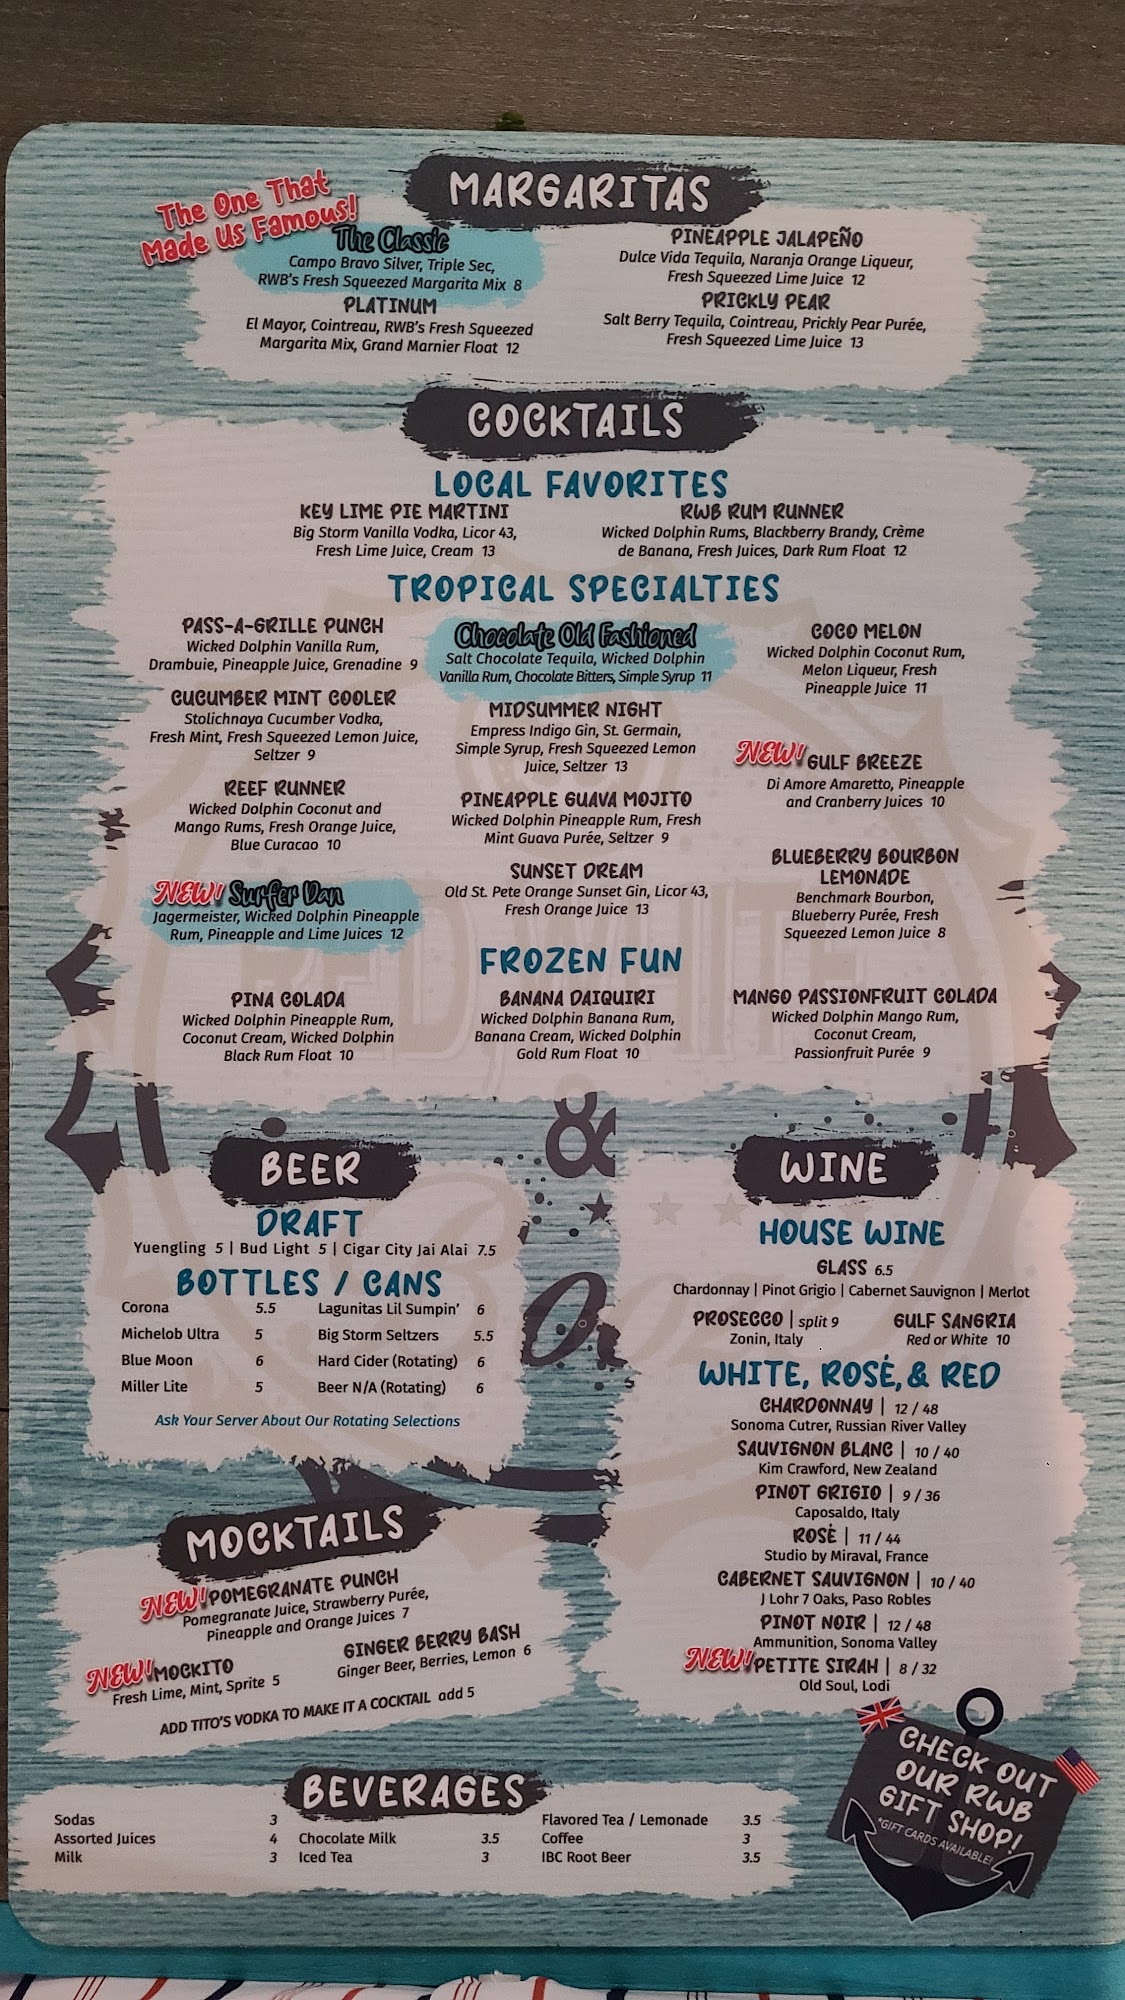 The One That
Made Us Famous!
MARGARITAS
The Classic
Campo Bravo Silver, Triple Sec,
RWB's Fresh Squeezed Margarita Mix 8
PLATINUM
El Mayor, Cointreau, RWB's Fresh Squeezed
Margarita Mix, Grand Marnier Float 12
PINEAPPLE JALAPEÑO
Dulce Vida Tequila, Naranja Orange Liqueur,
Fresh Squeezed Lime Juice 12
PRICKLY PEAR
Salt Berry Tequila, Cointreau, Prickly Pear Purée,
Fresh Squeezed Lime Juice 13
COCKTAILS
LOCAL FAVORITES
KEY LIME PIE MARTINI
Big Storm Vanilla Vodka, Licor 43,
Fresh Lime Juice, Cream 13
RWB RUM RUNNER
Wicked Dolphin Rums, Blackberry Brandy, Crème
de Banana, Fresh Juices, Dark Rum Float 12
TROPICAL SPECIALTIES
PASS-A-GRILLE PUNCH
Wicked Dolphin Vanilla Rum,
Drambuie, Pineapple Juice, Grenadine 9
CUCUMBER MINT COOLER
Stolichnaya Cucumber Vodka,
Fresh Mint, Fresh Squeezed Lemon Juice,
Seltzer 9
REEF RUNNER
Wicked Dolphin Coconut and
Mango Rums, Fresh Orange Juice,
Blue Curacao 10
NEW! Surfer Dan
Jagermeister, Wicked Dolphin Pineapple
Rum, Pineapple and Lime Juices 12
Chocolate Old Fashioned
Salt Chocolate Tequila, Wicked Dolphin
Vanilla Rum, Chocolate Bitters, Simple Syrup 11
MIDSUMMER NIGHT
Empress Indigo Gin, St. Germain,
Simple Syrup, Fresh Squeezed Lemon
Juice, Seltzer 13
PINEAPPLE GUAVA MOJITO
Wicked Dolphin Pineapple Rum, Fresh
Mint Guava Purée, Seltzer 9
SUNSET DREAM
Old St. Pete Orange Sunset Gin, Licor 43,
Fresh Orange Juice 13
COCO MELON
Wicked Dolphin Coconut Rum,
Melon Liqueur, Fresh
Pineapple Juice 11
NEW! GULF BREEZE
Di Amore Amaretto, Pineapple
and Cranberry Juices 10
BLUEBERRY BOURBON
LEMONADE
Benchmark Bourbon,
Blueberry Purée, Fresh
Squeezed Lemon Juice 8
FROZEN FUN
PINA COLADA
Wicked Dolphin Pineapple Rum,
Coconut Cream, Wicked Dolphin
Black Rum Float 10
BANANA DAIQUIRI
Wicked Dolphin Banana Rum,
Banana Cream, Wicked Dolphin
Gold Rum Float 10
MANGO PASSIONFRUIT COLADA
Wicked Dolphin Mango Rum,
Coconut Cream,
Passionfruit Purée 9
RED, WHITE
&
BEER
DRAFT
Yuengling 5 | Bud Light 5 | Cigar City Jai Alai 7.5
BOTTLES / CANS
Corona 5.5
Michelob Ultra 5
Blue Moon 6
Miller Lite 5
Lagunitas Lil Sumpin' 6
Big Storm Seltzers 5.5
Hard Cider (Rotating) 6
Beer N/A (Rotating) 6
Ask Your Server About Our Rotating Selections
WINE
HOUSE WINE
GLASS 6.5
Chardonnay | Pinot Grigio | Cabernet Sauvignon | Merlot
PROSECCO | split 9
Zonin, Italy
GULF SANGRIA
Red or White 10
WHITE, ROSÉ, & RED
CHARDONNAY | 12 / 48
Sonoma Cutrer, Russian River Valley
SAUVIGNON BLANC | 10 / 40
Kim Crawford, New Zealand
PINOT GRIGIO | 9 / 36
Caposaldo, Italy
ROSÉ | 11 / 44
Studio by Miraval, France
CABERNET SAUVIGNON | 10 / 40
J Lohr 7 Oaks, Paso Robles
PINOT NOIR | 12 / 48
Ammunition, Sonoma Valley
NEW! PETITE SIRAH | 8 / 32
Old Soul, Lodi
MOCKTAILS
NEW! POMEGRANATE PUNCH
Pomegranate Juice, Strawberry Purée,
Pineapple and Orange Juices 7
NEW! MOCKITO
Fresh Lime, Mint, Sprite 5
GINGER BERRY BASH
Ginger Beer, Berries, Lemon 6
ADD TITO'S VODKA TO MAKE IT A COCKTAIL add 5
BEVERAGES
Sodas 3
Assorted Juices 4
Milk 3
Chocolate Milk 3.5
Iced Tea 3
Flavored Tea / Lemonade 3.5
Coffee 3
IBC Root Beer 3.5
CHECK OUT
OUR RWB
GIFT SHOP!
*GIFT CARDS AVAILABLE!